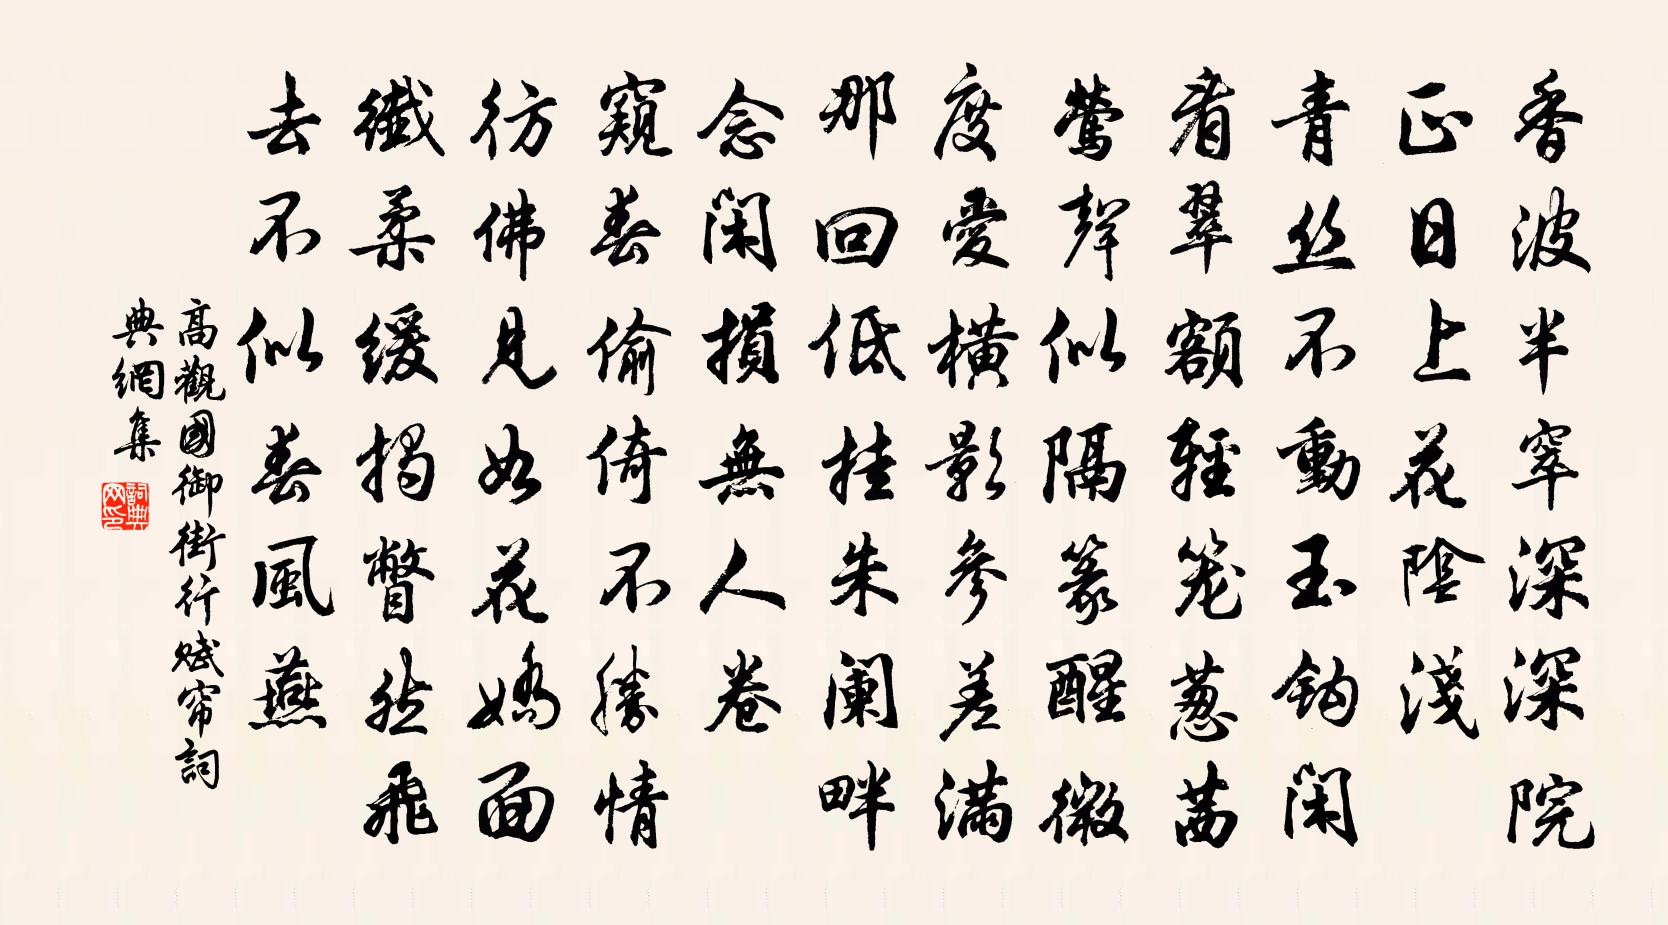 香波半窣深深院
正日上花陰淺
青丝不動玉鈎闲
看翠額輕笼葱茜
鶯聲似隔篆醒微
度愛橫影參差滿
那回低挂朱阑畔
念闲損無人卷
窺春偷倚不勝情
彷佛見如花嬌面
纖柔缓揭瞥然飛
去不似春風燕
高觀國御街行赋帘詞
典網集
詞典网印